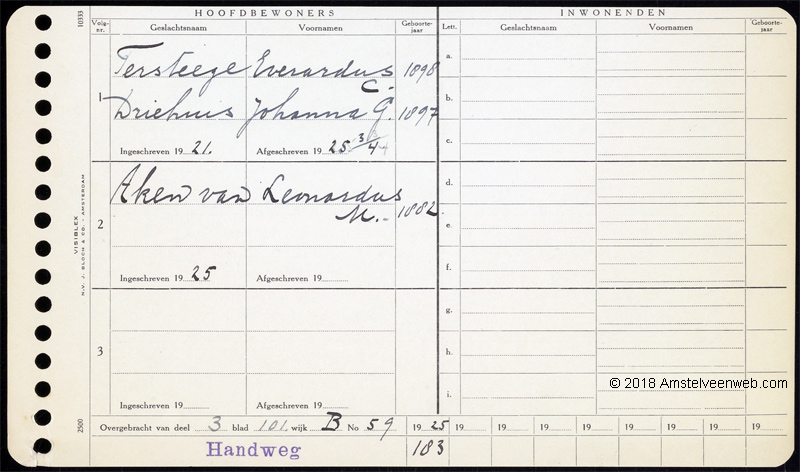 HOOFDBEWONERS
INWONENDEN
Volg-nr. Geslachtsnaam Voornamen Geboorte-jaar Lett. Geslachtsnaam Voornamen Geboorte-jaar
1 Tersteege Everardus C. 1898
Driehuis Johanna G. 1897
Ingeschreven 19 21. Afgeschreven 19 25 3/4
2 Aken van Leonardus M. 1882
Ingeschreven 19 25 Afgeschreven 19
3
Ingeschreven 19 Afgeschreven 19
a.
b.
c.
d.
e.
f.
g.
h.
i.
Overgebracht van deel 3 blad 101. wijk B No 59 19 25 19 19 19 19 19 19 19
Handweg 183
10333
VISIBLEX
N.V. J. BLOCH & CO. - AMSTERDAM
2500
© 2018 Amstelveenweb.com